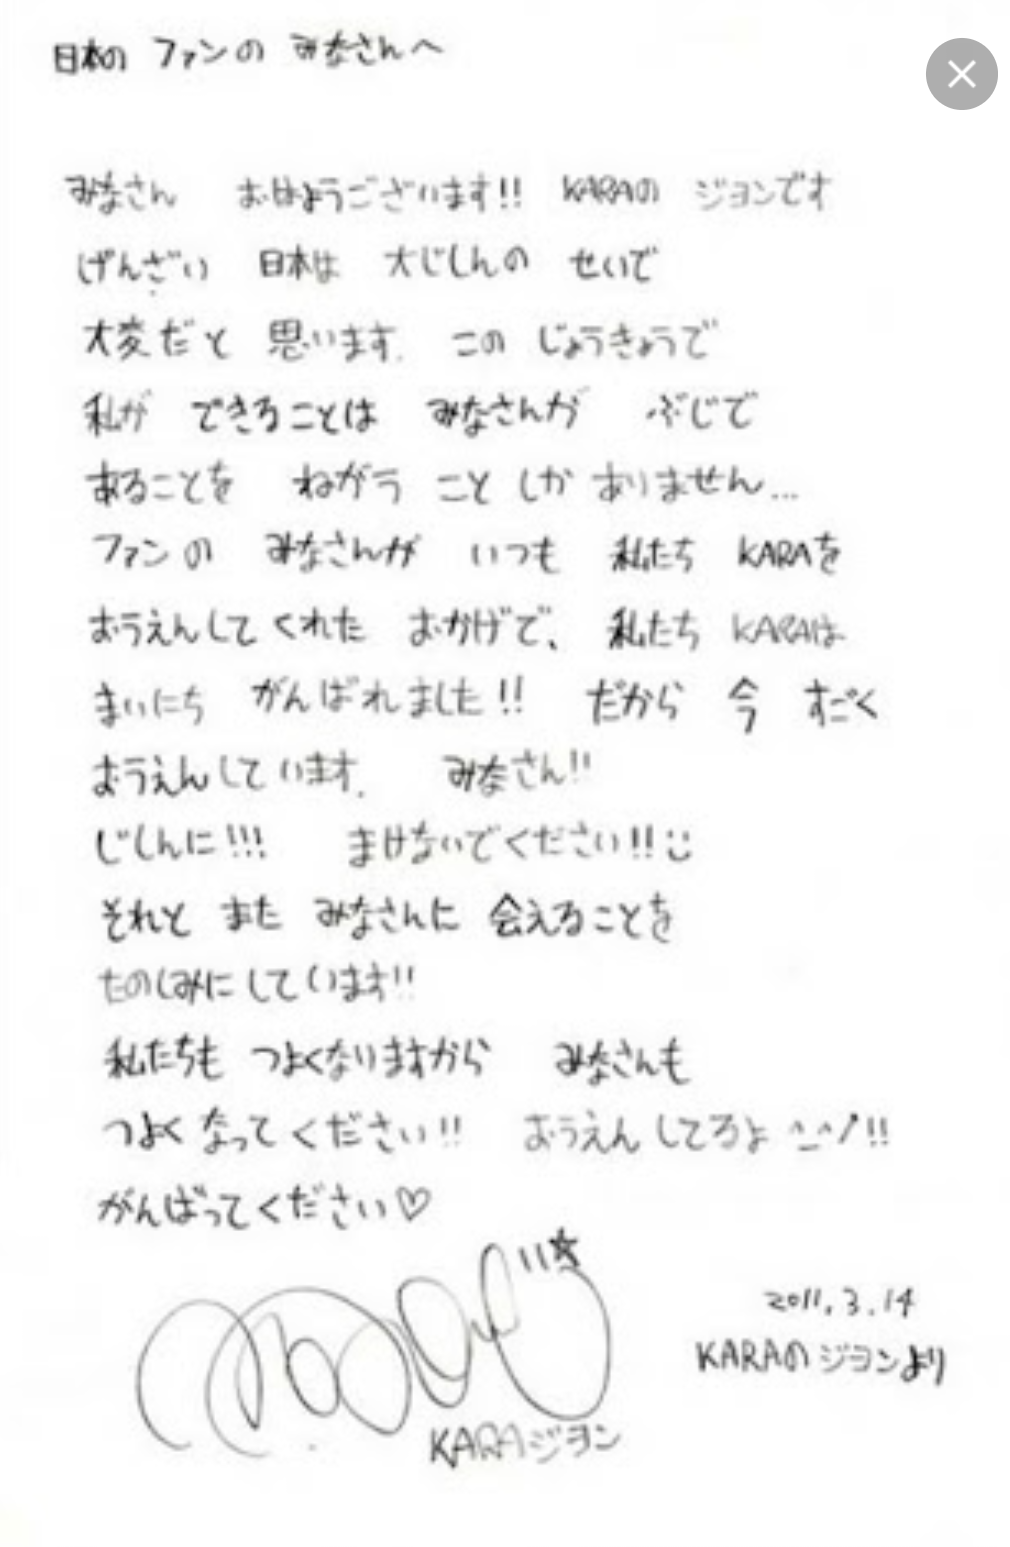 日本の ファンの みなさんへ
みなさん おはようございます!! KARAの ジヨンです
げんざい 日本は 大じしんの せいで
大変だと 思います. この じょうきょうで
私が できることは みなさんが ぶじで
あることを ねがう こと しか ありません...
ファンの みなさんが いつも 私たち KARAを
おうえんして くれた おかげで、 私たち KARAは
まいにち がんばれました!! だから 今 すごく
おうえんしています. みなさん!!
じしんに!!! まけないでください!! :)
それと また みなさんに 会えることを
たのしみにしています!!
私たちも つよくなりますから みなさんも
つよく なってください!! おうえん してろよ ^_^/!!
がんばってください♡
2011.3.14
KARAの ジヨンより
KARAジヨン